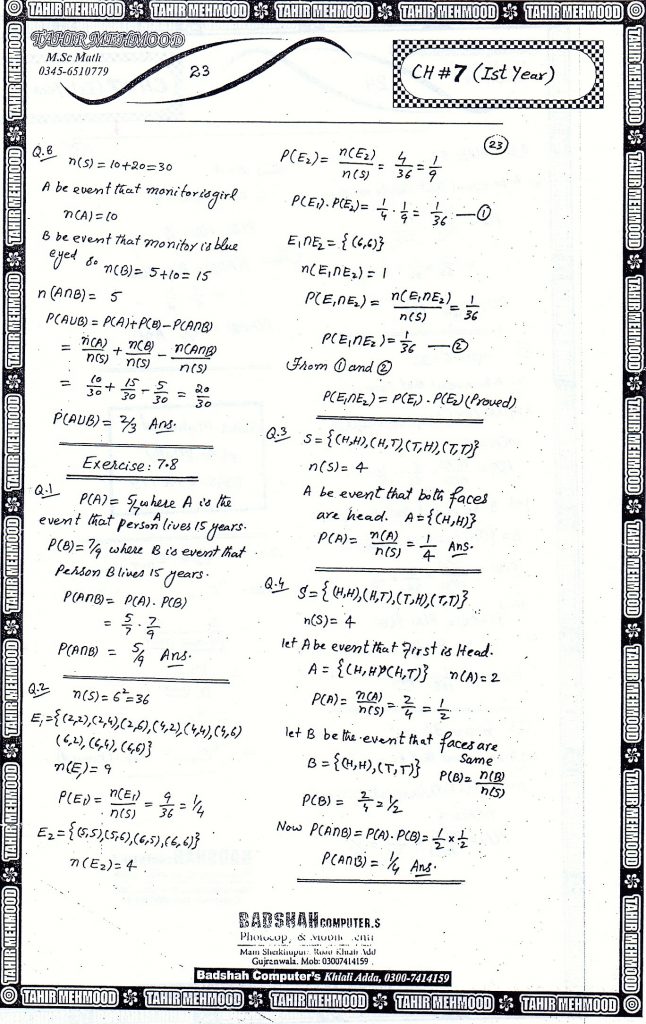 TAHIR MEHMOOD TAHIR MEHMOOD TAHIR MEHMOOD TAHIR MEHMOOD TAHIR MEHMOOD
TAHIR MEHMOOD
M.Sc Math
0345-6510779
23
CH # 7 (Ist Year)
23
Q.8 n(S) = 10+20=30
A be event that monitor is girl
n(A)=10
B be event that monitor is blue
eyed so n(B)= 5+10= 15
n(A∩B)= 5
P(A∪B) = P(A)+P(B)-P(A∩B)
= n(A)/n(S) + n(B)/n(S) - n(A∩B)/n(S)
= 10/30 + 15/30 - 5/30 = 20/30
P(A∪B) = 2/3 Ans.
Exercise: 7.8
Q.1 P(A) = 5/7 where A is the
event that person A lives 15 years.
P(B)= 7/9 where B is event that
Person B lives 15 years.
P(A∩B)= P(A). P(B)
= 5/7 . 7/9
P(A∩B) = 5/9 Ans.
Q.2 n(S)=6²=36
E₁={(2,2),(2,4),(2,6),(4,2),(4,4),(4,6)
(6,2),(6,4),(6,6)}
n(E₁)= 9
P(E₁)= n(E₁)/n(S) = 9/36 = 1/4
E₂={(5,5),(5,6),(6,5),(6,6)}
n(E₂)=4
P(E₂)= n(E₂)/n(S) = 4/36 = 1/9
P(E₁).P(E₂)= 1/4 . 1/9 = 1/36 —①
E₁∩E₂= {(6,6)}
n(E₁∩E₂)= 1
P(E₁∩E₂)= n(E₁∩E₂)/n(S) = 1/36
P(E₁∩E₂)= 1/36 —②
From ① and ②
P(E₁∩E₂)= P(E₁) . P(E₂) (Proved)
Q.3 S={(H,H),(H,T),(T,H),(T,T)}
n(S)= 4
A be event that both faces
are head. A={(H,H)}
P(A)= n(A)/n(S) = 1/4 Ans.
Q.4 S={(H,H),(H,T),(T,H),(T,T)}
n(S)= 4
let A be event that First is Head.
A = {(H,H),(H,T)} n(A)=2
P(A)= n(A)/n(S) = 2/4 = 1/2
let B be the event that faces are
same
B={(H,H),(T,T)} P(B)= n(B)/n(S)
P(B)= 2/4 = 1/2
Now P(A∩B)=P(A).P(B)= 1/2 × 1/2
P(A∩B)= 1/4 Ans.
BADSHAH COMPUTER.S
Gujranwala. Mob: 03007414159
Badshah Computer's Khiali Adda, 0300-7414159
TAHIR MEHMOOD TAHIR MEHMOOD TAHIR MEHMOOD TAHIR MEHMOOD TAHIR MEHMOOD